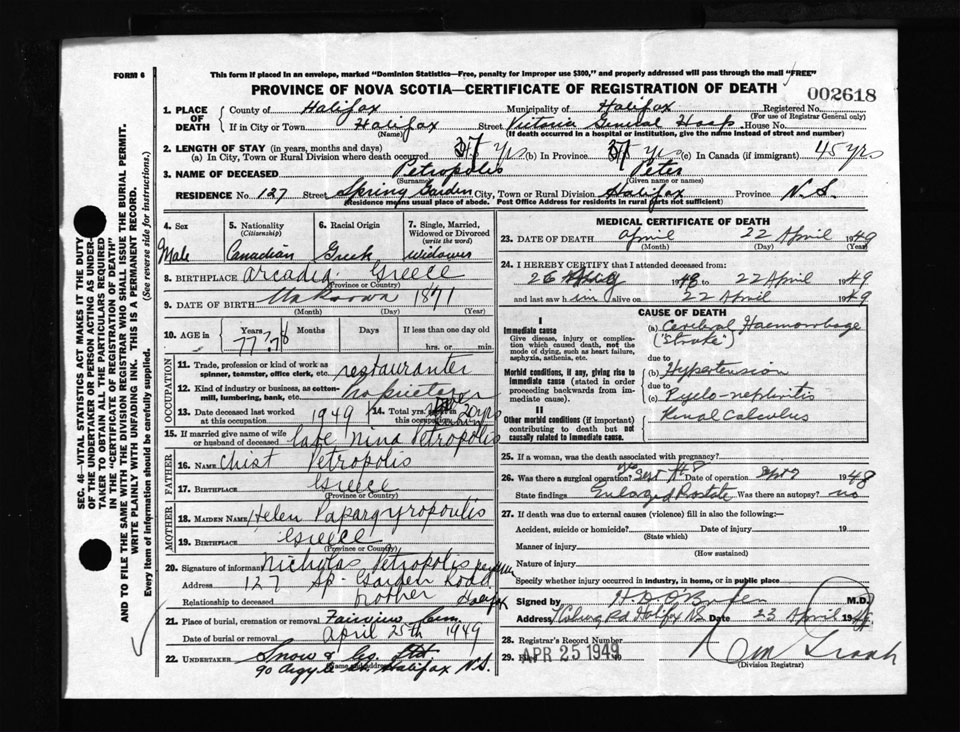 FORM 6
This form if placed in an envelope, marked "Dominion Statistics—Free, penalty for improper use $300," and properly addressed will pass through the mail "FREE"
PROVINCE OF NOVA SCOTIA—CERTIFICATE OF REGISTRATION OF DEATH
002618
1. PLACE OF DEATH
County of Halifax Municipality of Halifax Registered No.
(For use of Registrar General only)
If in City or Town Halifax Street Victoria General Hosp. House No.
(Name) (If death occurred in a hospital or institution, give the name instead of street and number)
2. LENGTH OF STAY (in years, months and days)
(a) In City, Town or Rural Division where death occurred 37 yrs (b) In Province 37 yrs (c) In Canada (if immigrant) 45 yrs
3. NAME OF DECEASED Petropolis Peter
(Surname) (Given name or names)
RESIDENCE No. 127 Street Spring Garden City, Town or Rural Division Halifax Province N.S.
(Residence means usual place of abode. Post Office Address for residents in rural parts not sufficient)
4. Sex Male
5. Nationality (Citizenship) Canadian
6. Racial Origin Greek
7. Single, Married, Widowed or Divorced (write the word) Widower
8. BIRTHPLACE Arcadia Greece
9. DATE OF BIRTH Unknown 1871
(Month) (Day) (Year)
10. AGE in Years Months Days If less than one day old
77 78 hrs. or min.
OCCUPATION
11. Trade, profession or kind of work as spinner, teamster, office clerk, etc. restauranter
12. Kind of industry or business, as cotton-mill, lumbering, bank, etc.
13. Date deceased last worked at this occupation 1949
14. Total yrs. this occupation 20 yrs
15. If married give name of wife or husband of deceased late Nina Petropolis
FATHER
16. NAME Chist Petropolis
17. BIRTHPLACE Greece
(Province or Country)
MOTHER
18. MAIDEN NAME Helen Papargyropoulis
19. BIRTHPLACE Greece
(Province or Country)
20. Signature of informant Nicholas Petropolis
Address 127 Sp. Garden Road Halifax
Relationship to deceased brother
21. Place of burial, cremation or removal Fairview Cem.
Date of burial or removal April 25th 1949
22. UNDERTAKER Snow & Co. Ltd
(Name and address) 90 Argyle St. Halifax N.S.
MEDICAL CERTIFICATE OF DEATH
23. DATE OF DEATH April 22 April 1949
(Month) (Day) (Year)
24. I HEREBY CERTIFY that I attended deceased from:
26 Aug 1948 to 22 April 1949
and last saw him alive on 22 April 1949
CAUSE OF DEATH
I
Immediate cause
Give disease, injury or complication which caused death, not the mode of dying, such as heart failure, asphyxia, asthenia, etc.
(a) Cerebral Haemorrhage
("Stroke")
due to
Morbid conditions, if any, giving rise to immediate cause (stated in order proceeding backwards from immediate cause).
(b) Hypertension
due to
(c) Pyelo-nephritis
Renal Calculus
II
Other morbid conditions (if important) contributing to death but not causally related to immediate cause.
25. If a woman, was the death associated with pregnancy?
26. Was there a surgical operation? yes Sept /48 Date of operation Sept 1948
State findings Enlarged Prostate Was there an autopsy? no
27. If death was due to external causes (violence) fill in also the following:—
Accident, suicide or homicide? Date of injury 19
(State which)
Manner of injury
(How sustained)
Nature of injury
Specify whether injury occurred in industry, in home, or in public place
Signed by H.D. O'Brien M.D.
Address Halifax N.S. Date 23 April 1949
28. Registrar's Record Number
29. Filed APR 25 1949
(Division Registrar)
SEC. 46—VITAL STATISTICS ACT MAKES IT THE DUTY
OF THE UNDERTAKER OR PERSON ACTING AS UNDERTAKER
TO OBTAIN ALL THE PARTICULARS REQUIRED
IN THE "CERTIFICATE OF REGISTRATION OF DEATH"
AND TO FILE THE SAME WITH THE DIVISION REGISTRAR WHO SHALL ISSUE THE BURIAL PERMIT.
WRITE PLAINLY WITH UNFADING INK. THIS IS A PERMANENT RECORD.
Every item of information should be carefully supplied. (See reverse side for instructions.)